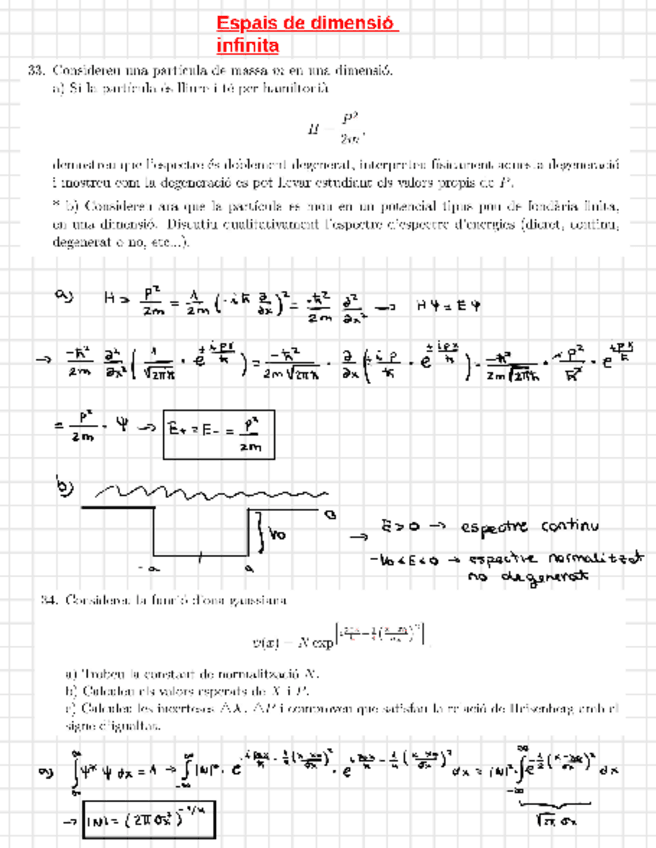 Espais de dimensió
infinita
33. Considereu una partícula de massa m en una dimensió.
a) Si la partícula és lliure i té per hamiltonià
H = P²/2m,
demostreu que l'espectre és doblement degenerat, interpreteu físicament aquesta degeneració
i mostreu com la degeneració es pot llevar estudiant els valors propis de P.
* b) Considereu ara que la partícula es mou en un potencial tipus pou de fondària finita,
en una dimensió. Discutiu qualitativament l'espectre d'espectre d'energies (discret, continu,
degenerat o no, etc...).
a) H = P²/2m = 1/2m (-iħ ∂/∂x)² = -ħ²/2m ∂²/∂x² → HΨ = EΨ
→ -ħ²/2m ∂²/∂x² (1/√2πħ · e^(±ipx/ħ)) = -ħ²/2m√2πħ · ∂/∂x (±ip/ħ · e^(±ipx/ħ)) = -ħ²/2m√2πħ · -p²/ħ² · e^(±ipx/ħ)
= p²/2m · Ψ → E+ = E- = p²/2m
b)
0
V₀
-a a
→ E>0 → espectre continu
-V₀<E<0 → espectre normalitzat
no degenerat
34. Considereu la funció d'ona gaussiana
a) Trobeu la constant de normalització N.
b) Calculeu els valors esperats de X i P.
c) Calculeu les incerteses ΔX, ΔP i comproveu que satisfan la relació de Heisenberg amb el
signe d'igualtat.
a) ∫ψ*ψ dx = 1 → ∫|N|² · · dx = |N|² · ∫ dx
→ |N| = (2πσx²)^(-1/4) √2π σx